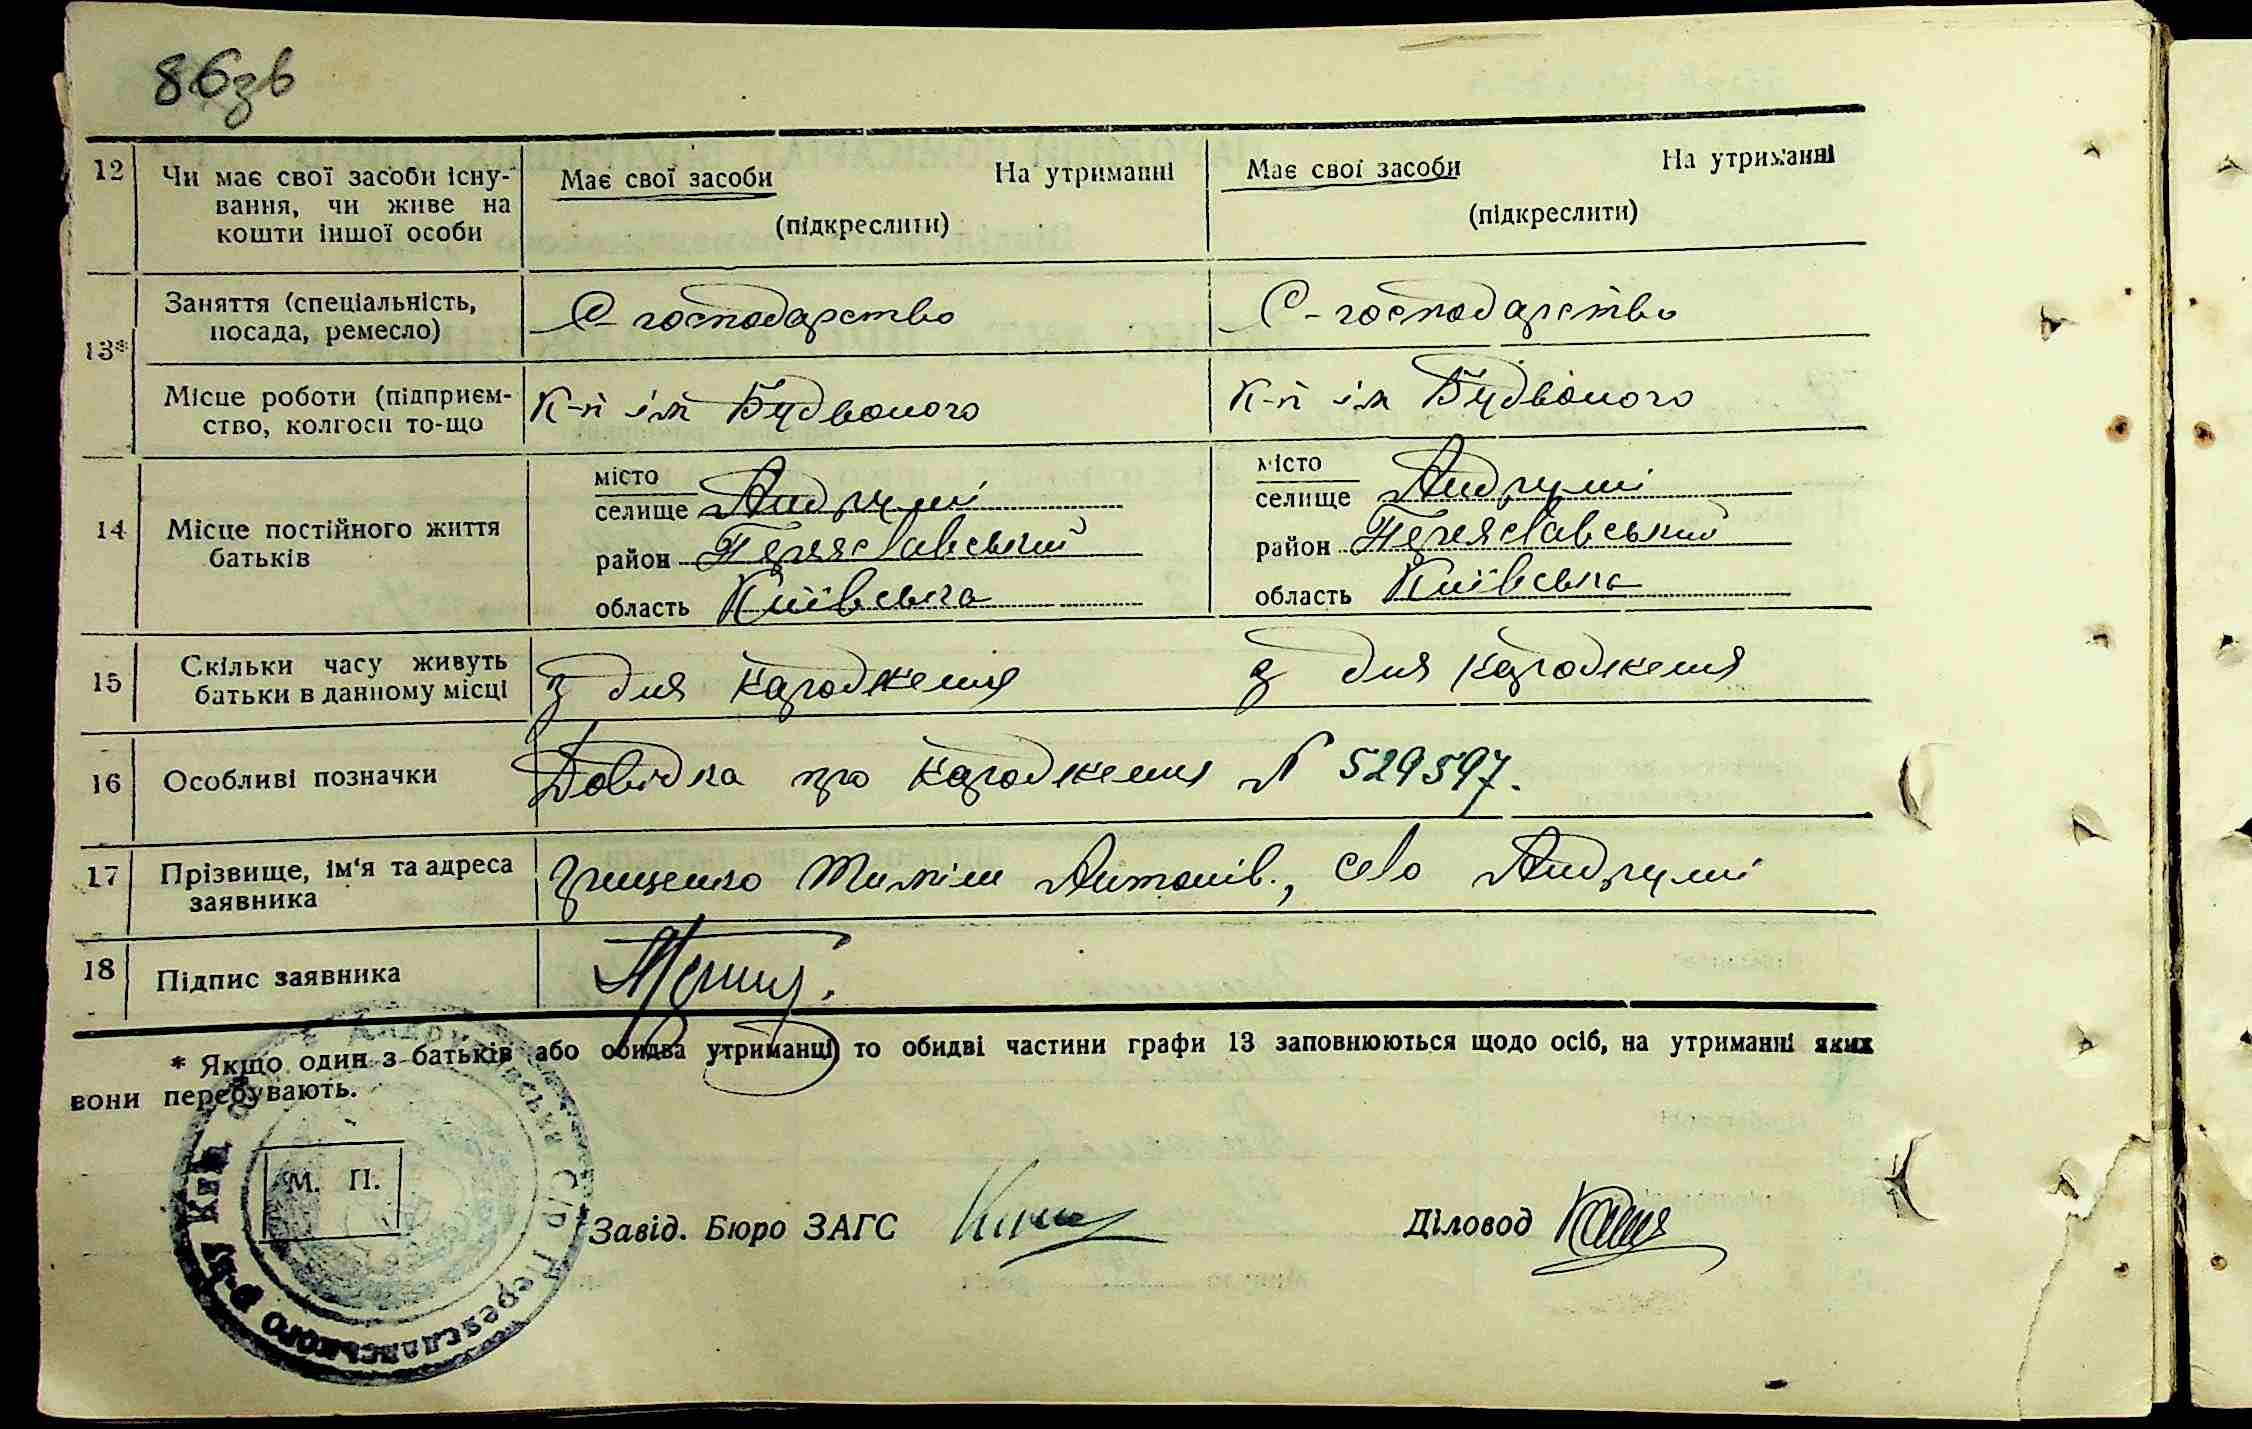 86зв
12 Чи має свої засоби існу- Має свої засоби На утриманні Має свої засоби На утриманні
вання, чи живе на
кошти іншої особи (підкреслити) (підкреслити)
Заняття (спеціальність,
посада, ремесло) С-господарство С-господарство
13*
Місце роботи (підприєм- К-п ім Будьоного К-п ім Будьоного
ство, колгосп то-що
місто місто
селище Андруші селище Андруші
14 Місце постійного життя
батьків район Переяславський район Переяславський
область Київська область Київська
15 Скільки часу живуть
батьки в данному місці з дня народження з дня народження
16 Особливі позначки Довідка про народження № 529597.
17 Прізвище, ім'я та адреса
заявника Грищенко Антонів., село Андруші
18 Підпис заявника
* Якщо один з батьків або обидва утриманці то обидві частини графи 13 заповнюються щодо осіб, на утриманні яких
вони перебувають.
М. П.
Завід. Бюро ЗАГС Діловод
Андрушівська С/Р Переяславського р-ну Київ